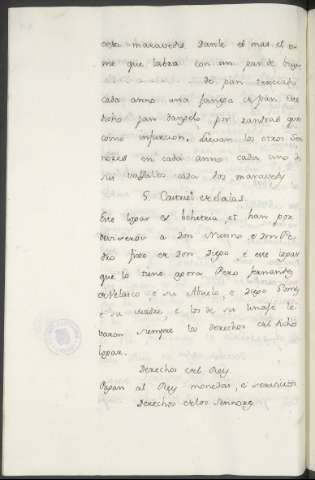 ocho maravedis. Danle el mas el ome
me que labra con un par de bueys
de pan terciado
cada anno una fanega de pan, este
dicho pan dangelo por razon que
como infurcion. Lievan los otros Sen
nores en cada anno cada uno de
sus vassallos ocho maravedis
5. Castriel de Salas.
Este logar es behetria, et han por
deviseros a Don Nunno, e Don Pe
dro fijo de Don Diego, e este logar
que lo tiene agora Pero Fernandez
de Velasco, e su Abuelo, e Diego Perez
e su padre, e los de su linage le
varon siempre los derechos del dicho
logar.
Derechos del Rey
Pagan al Rey monedas, e servicios
Derechos de los Sennores